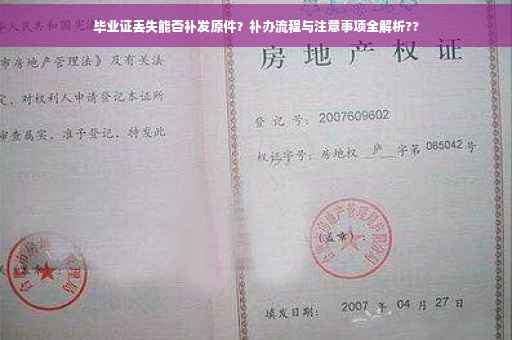 毕业证丢失能否补发原件？补办流程与注意事项全解析??
人民共和国宪法
市房地产管理法》及有关法
定，对权利人申请登记本证所
审查属实，准予登记，特发此
房地产权证
登记号：2007609602
权证字号：房地权 庐 字第 065042 号
（盖章）：
填发日期：2007 年 04 月 27 日